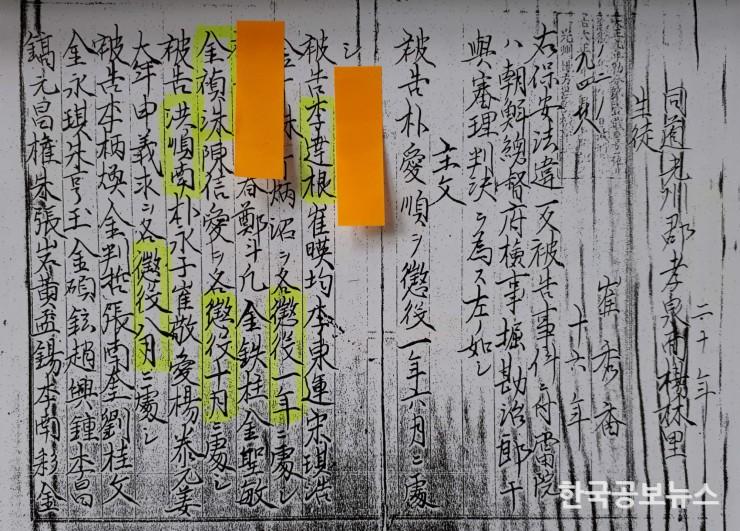 二十年
同道光州郡孝泉面楊林里
生徒
崔秀香
十六年
右保安法違反被告事件ニ付當院
ハ朝鮮總督府検事堀勘治郎干
與審理判決ヲ為ス左ノ如シ
主文
被告朴愛順ヲ懲役一年六月ニ處
シ
被告李達根崔暎均李東運宋琪浩
金 洙 炳沼ヲ各懲役一年ニ處シ
春鄭斗凡金鉄柱金聖敏
金禎洙陳信愛ヲ各懲役十月ニ處シ
被告洪順南朴永子崔敬愛楊泰元姜
大年申義求ヲ各懲役八月ニ處シ
被告李柄煥金判哲張南奎劉桂文
金永琪朱亨玉金碩鉉趙興鍾李昌
鎬元昌權朱張岩黄孟錫李南 金
한국공보뉴스